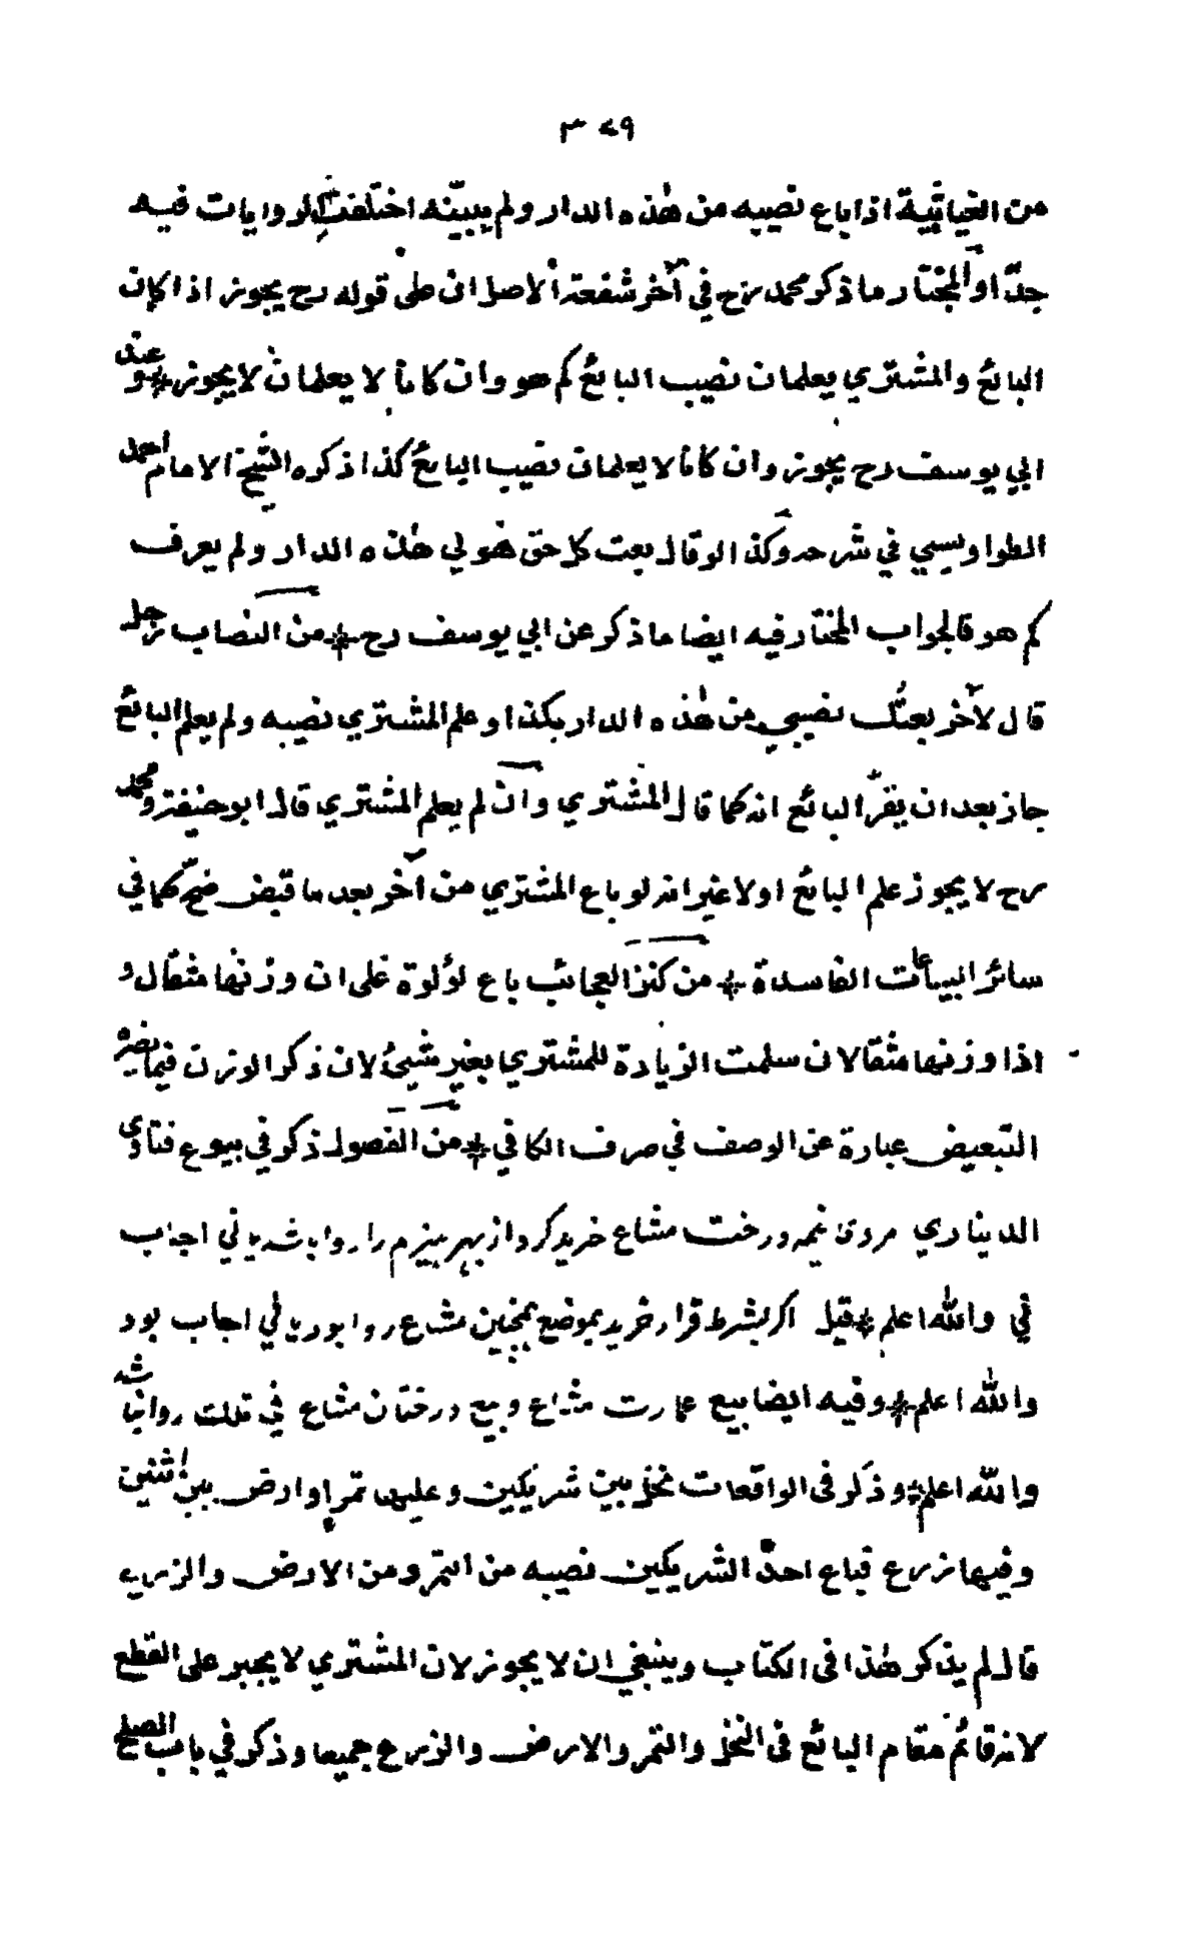 ٣٧٩
من الغياثية اذا باع نصيبه من هٰذه الدار ولم يبيّنه اختلفت الروايات فيه
جدّا والمختار ما ذكر محمد رح في آخر شفعة الاصل ان على قوله رح يجوز اذا كان
البائع والمشتري يعلمان نصيب البائع كم هو وان كانا لا يعلمان لا يجوز * وعند
ابي يوسف رح يجوز وان كانا لا يعلمان نصيب البائع كذا ذكره الشيخ الامام احمد
الطواويسي في شرحه وكذا لو قال بعت كل حق هو لي هٰذه الدار ولم يعرف
كم هو فالجواب المختار فيه ايضا ما ذكر عن ابي يوسف رح * من النصاب رجل
قال لآخر بعتك نصيبي من هٰذه الدار بكذا وعلم المشتري نصيبه ولم يعلم البائع
جاز بعد ان يقرّ البائع انه كما قال المشتري وان لم يعلم المشتري قال ابو حنيفة ومحمد
رح لا يجوز علم البائع او لا غير انه لو باع المشتري من آخر بعد ما قبض صحّ كما في
سائر البياعات الفاسدة * من كنز العجائب باع لؤلوة على ان وزنها مثقال و
اذا وزنها مثقالان سلمت الزيادة للمشتري بغير شيئ لان ذكر الوزن فيما يضره
التبعيض عبارة عن الوصف في صرف الكافي * من الفصول ذكر في بيوع فتاوى
الديناري مردى نيمه درخت مشاع خريد كرد از بهر هيزم را روا باشد يا ني اجاب
ني والله اعلم * قيل اگر بشرط قرار خريد بموضع همچنين مشاع روا بود يا ني اجاب بود
والله اعلم * وفيه ايضا بيع عمارت مشاع وبيع درختان مشاع في تللت روا نباشد
والله اعلم * وذكر فى الواقعات نخل بين شريكين وعليها تمر او ارض بين اثنين
وفيها زرع فباع احد الشريكين نصيبه من التمر ومن الارض والزرع
قال لم يذكر هٰذا فى الكتاب وينبغي ان لا يجوز لان المشتري لا يجبر على القطع
لانه قائم مقام البائع فى النخل والتمر والارض والزرع جميعا وذكر في باب الصلح